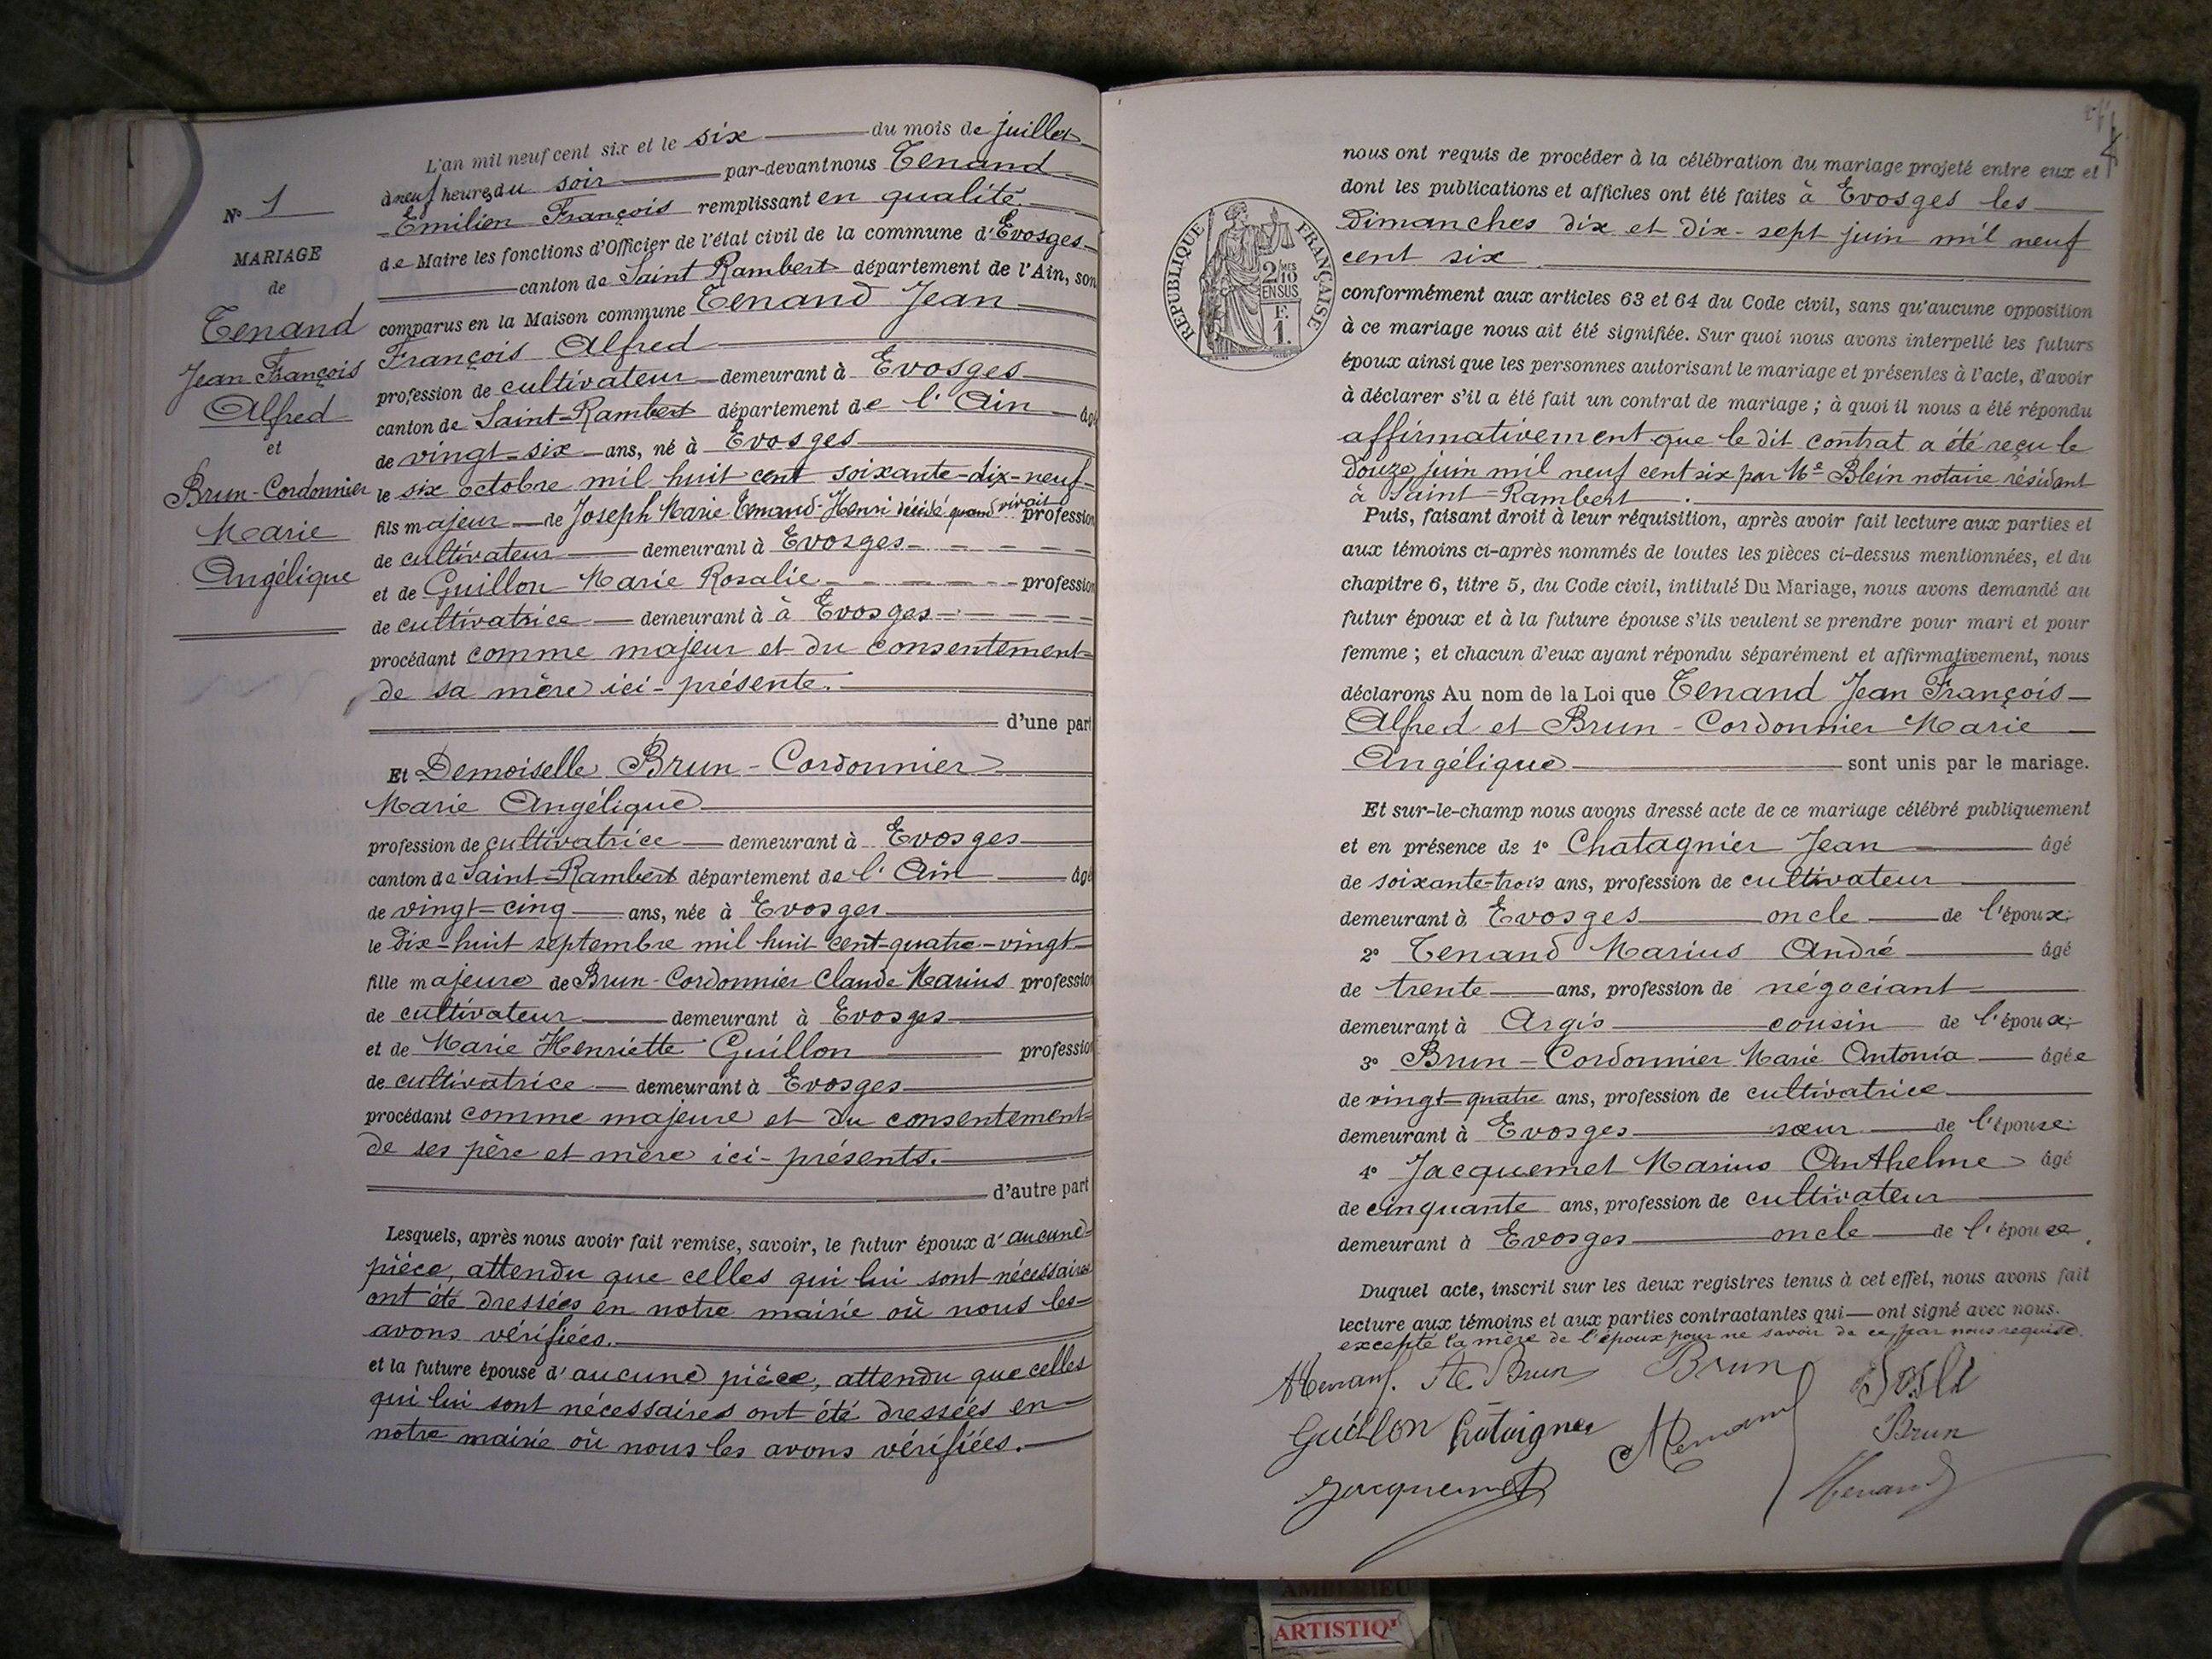 N° 1
MARIAGE
de
Tenand
Jean François
Alfred
et
Brun-Cordonnier
Marie
Angélique
L'an mil neuf cent six et le six du mois de juillet
à neuf heures du soir par-devant nous Tenand
Emilien François remplissant en qualité
de Maire les fonctions d'Officier de l'état civil de la commune d'Evosges
canton de Saint Rambert département de l'Ain, son
comparus en la Maison commune Tenand Jean
François Alfred
profession de cultivateur demeurant à Evosges
canton de Saint-Rambert département de l'Ain âgé
de vingt-six ans, né à Evosges
le six octobre mil huit cent soixante-dix-neuf
fils majeur de Joseph Marie Tenand-Henri décédé quand vivait profession
de cultivateur demeurant à Evosges
et de Guillon Marie Rosalie profession
de cultivatrice demeurant à à Evosges
procédant comme majeur et du consentement
de sa mère ici-présente.
d'une part
Et Demoiselle Brun-Cordonnier
Marie Angélique
profession de cultivatrice demeurant à Evosges
canton de Saint-Rambert département de l'Ain âgé
de vingt-cinq ans, née à Evosges
le dix-huit septembre mil huit-cent-quatre-vingt
fille majeure de Brun-Cordonnier Claude Marius profession
de cultivateur demeurant à Evosges
et de Marie Henriette Guillon profession
de cultivatrice demeurant à Evosges
procédant comme majeure et du consentement
de ses père et mère ici-présents.
d'autre part
Lesquels, après nous avoir fait remise, savoir, le futur époux d'aucune
pièce, attendu que celles qui lui sont nécessaires
ont été dressées en notre mairie où nous les
avons vérifiées.
et la future épouse d'aucune pièce, attendu que celles
qui lui sont nécessaires ont été dressées en
notre mairie où nous les avons vérifiées.
nous ont requis de procéder à la célébration du mariage projeté entre eux et
dont les publications et affiches ont été faites à Evosges les
Dimanches dix et dix-sept juin mil neuf
cent six
RÉPUBLIQUE FRANÇAISE
2/10MES
EN SUS
F.
1.
conformément aux articles 63 et 64 du Code civil, sans qu'aucune opposition
à ce mariage nous ait été signifiée. Sur quoi nous avons interpellé les futurs
époux ainsi que les personnes autorisant le mariage et présentes à l'acte, d'avoir
à déclarer s'il a été fait un contrat de mariage ; à quoi il nous a été répondu
affirmativement que le dit contrat a été reçu le
douze juin mil neuf cent six par Me Blein notaire résidant
à Saint-Rambert.
Puis, faisant droit à leur réquisition, après avoir fait lecture aux parties et
aux témoins ci-après nommés de toutes les pièces ci-dessus mentionnées, et du
chapitre 6, titre 5, du Code civil, intitulé Du Mariage, nous avons demandé au
futur époux et à la future épouse s'ils veulent se prendre pour mari et pour
femme ; et chacun d'eux ayant répondu séparément et affirmativement, nous
déclarons Au nom de la Loi que Tenand Jean François
Alfred et Brun-Cordonnier Marie
Angélique sont unis par le mariage.
Et sur-le-champ nous avons dressé acte de ce mariage célébré publiquement
et en présence de 1° Chatagnier Jean âgé
de soixante-trois ans, profession de cultivateur
demeurant à Evosges oncle de l'époux;
2° Tenand Marius André âgé
de trente ans, profession de négociant
demeurant à Argis cousin de l'époux;
3° Brun-Cordonnier Marie Antonia âgée
de vingt-quatre ans, profession de cultivatrice
demeurant à Evosges sœur de l'épouse;
4° Jacquemet Marius Anthelme âgé
de cinquante ans, profession de cultivateur
demeurant à Evosges oncle de l'épouse.
Duquel acte, inscrit sur les deux registres tenus à cet effet, nous avons fait
lecture aux témoins et aux parties contractantes qui ont signé avec nous.
excepté la mère de l'époux pour ne savoir de ce par nous requise.
Brun Brun
Guillon Chataigner Brun
Jacquemet Tenand
AMBERIEU
ARTISTIQ